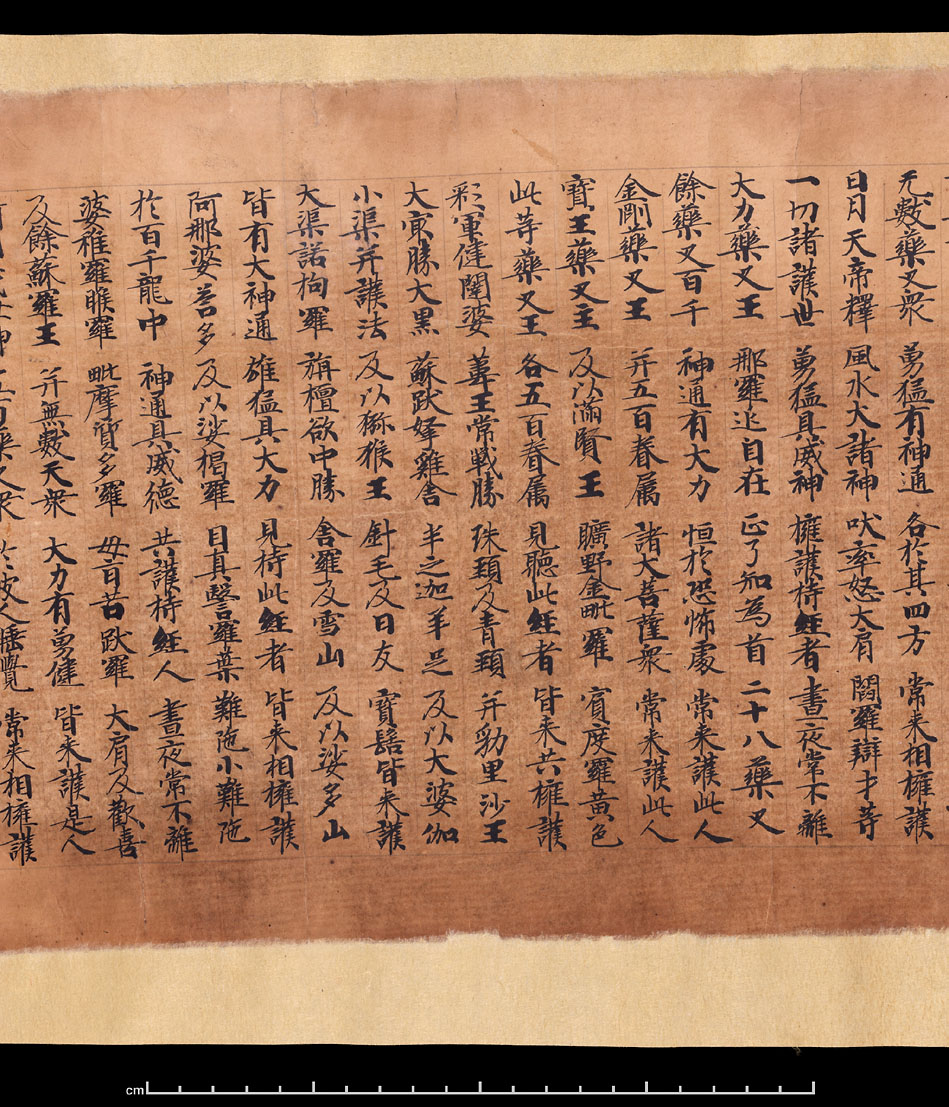 无數藥叉衆 勇猛有神通 各於其四方 常来相擁護
日月天帝釋 風水火諸神 吠率怒大肩 閻羅辯才等
一切諸護世 勇猛具威神 擁護持經者 晝夜常不離
大力藥叉王 那羅延自在 正了知為首 二十八藥叉
餘藥叉百千 神通有大力 恒於恐怖處 常来護此人
金剛藥叉王 并五百眷屬 諸大菩薩衆 常来護此人
寶王藥叉王 及以滿賢王 曠野金毗羅 賓度羅黃色
此等藥叉王 各五百眷屬 見聽此經者 皆来共擁護
彩軍健闥婆 葦王常戰勝 珠頸及青頸 并勃里沙王
大寅勝大黑 蘇跋拏雞舍 半之迦羊足 及以大婆伽
小渠并護法 及以獼猴王 針毛及日友 寶髻皆来護
大渠諾拘羅 旃檀欲中勝 舍羅及雪山 及以娑多山
皆有大神通 雄猛具大力 見持此經者 皆来相擁護
阿那婆荅多 及以娑揭羅 目真羅葉 難陁小難陁
於百千龍中 神通具威德 共護持經人 晝夜常不離
婆稚羅睺羅 毗摩質多羅 母旨苫跋羅 大肩及歡喜
及餘蘇羅王 并無數天衆 大力有勇健 皆来護是人
母神 五百藥叉衆 於彼人睡覺 常来相擁護